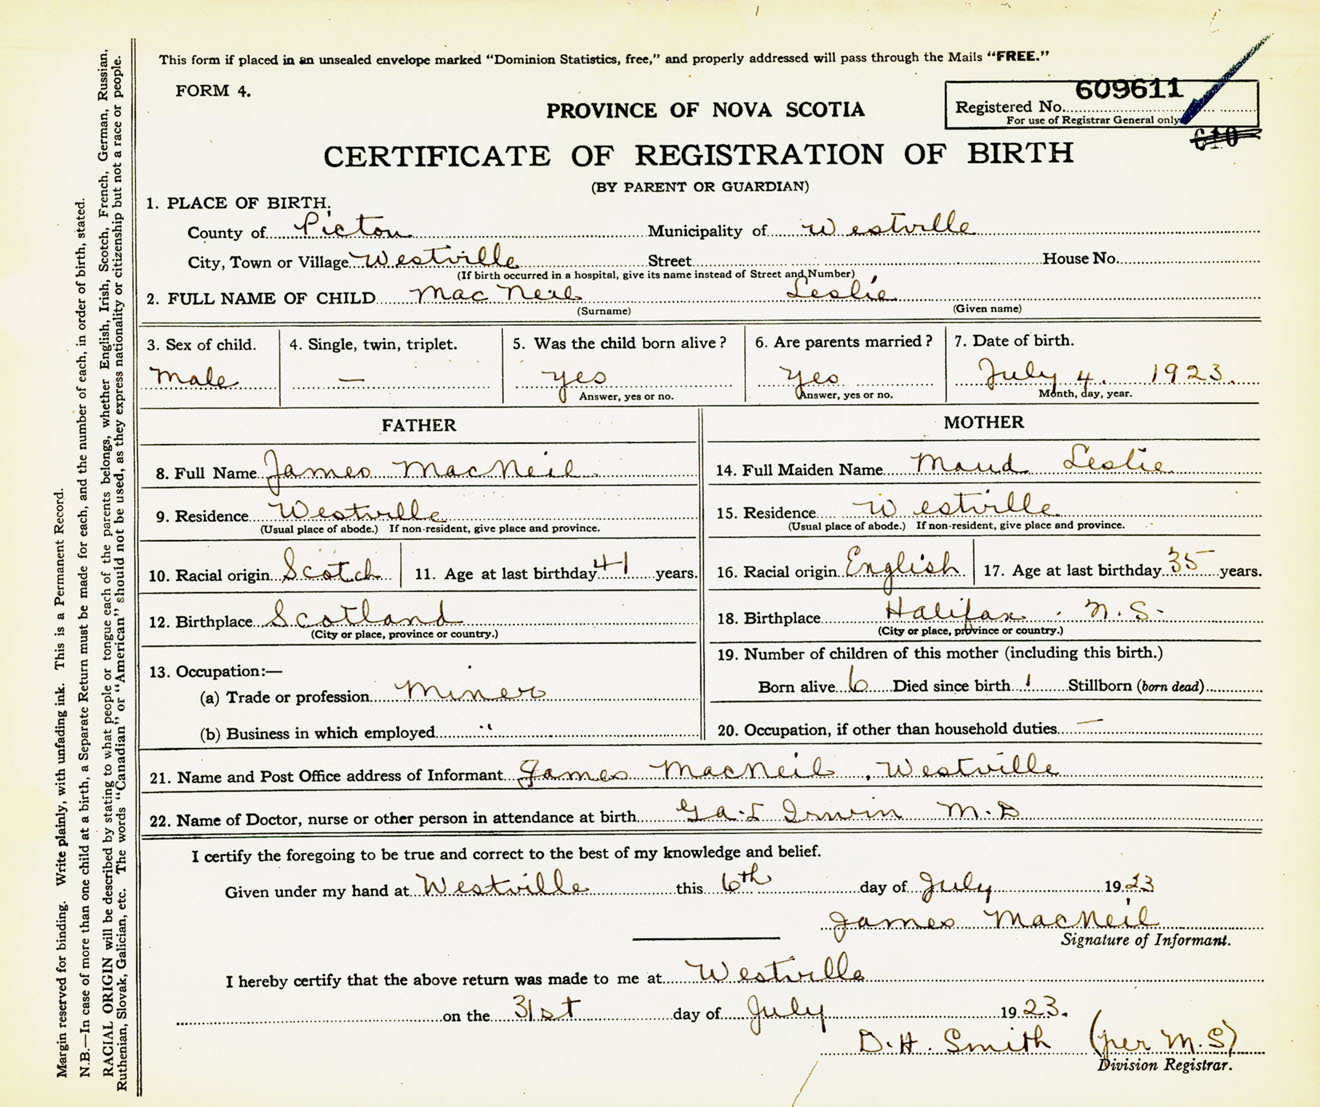 This form if placed in an unsealed envelope marked "Dominion Statistics, free," and properly addressed will pass through the Mails "FREE."
FORM 4.
PROVINCE OF NOVA SCOTIA
Registered No. 609611
For use of Registrar General only
610
CERTIFICATE OF REGISTRATION OF BIRTH
(BY PARENT OR GUARDIAN)
1. PLACE OF BIRTH.
County of Pictou Municipality of Westville
City, Town or Village Westville Street House No.
(If birth occurred in a hospital, give its name instead of Street and Number)
2. FULL NAME OF CHILD MacNeil Leslie
(Surname) (Given name)
3. Sex of child. 4. Single, twin, triplet. 5. Was the child born alive? 6. Are parents married? 7. Date of birth.
Male — yes yes July 4. 1923.
Answer, yes or no. Answer, yes or no. Month, day, year.
FATHER MOTHER
8. Full Name James MacNeil 14. Full Maiden Name Maud Leslie
9. Residence Westville 15. Residence Westville
(Usual place of abode.) If non-resident, give place and province. (Usual place of abode.) If non-resident, give place and province.
10. Racial origin Scotch 11. Age at last birthday 41 years. 16. Racial origin English 17. Age at last birthday 35 years.
12. Birthplace Scotland 18. Birthplace Halifax. N.S.
(City or place, province or country.) (City or place, province or country.)
13. Occupation:— 19. Number of children of this mother (including this birth.)
(a) Trade or profession Miner Born alive 6 Died since birth 1 Stillborn (born dead)
(b) Business in which employed " 20. Occupation, if other than household duties —
21. Name and Post Office address of Informant James MacNeil, Westville
22. Name of Doctor, nurse or other person in attendance at birth Irwin M.D
I certify the foregoing to be true and correct to the best of my knowledge and belief.
Given under my hand at Westville this 6th day of July 1923
James MacNeil
Signature of Informant.
I hereby certify that the above return was made to me at Westville
on the 31st day of July 1923.
D.H. Smith (per M.S)
Division Registrar.
Margin reserved for binding. Write plainly, with unfading ink. This is a Permanent Record.
N.B.—In case of more than one child at a birth, a Separate Return must be made for each, and the number of each, in order of birth, stated.
RACIAL ORIGIN will be described by stating to what people or tongue each of the parents belongs, whether English, Irish, Scotch, French, German, Russian,
Ruthenian, Slovak, Galician, etc. The words "Canadian" or "American" should not be used, as they express nationality or citizenship but not a race or people.